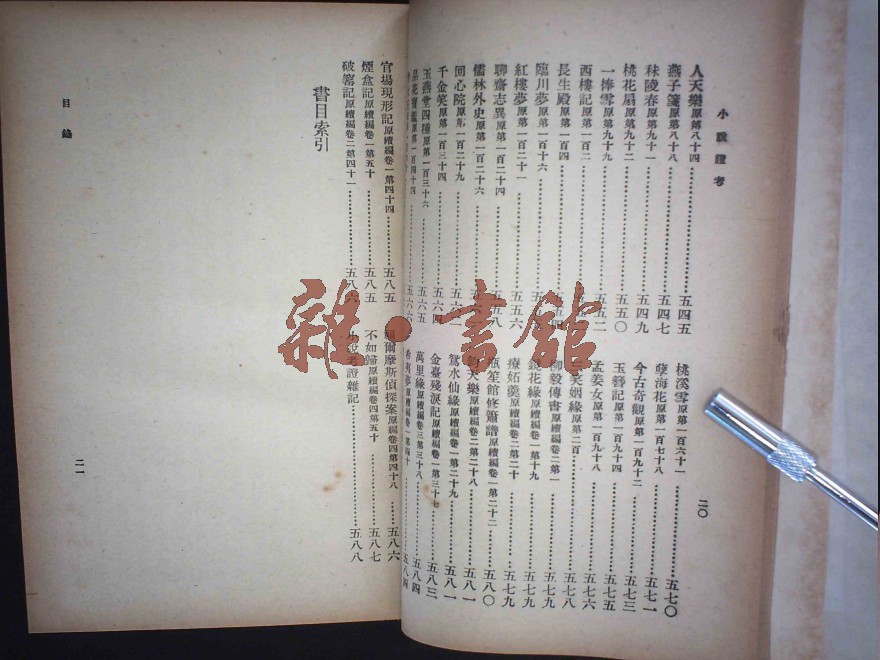 小說證考
人天樂原第八十四……五四五
燕子箋原第八十八……五四七
秣陵春原第九十一……五四九
桃花扇原第九十二……五五〇
一捧雪原第九十九……五五二
西樓記原第一百二
長生殿原第一百四
臨川夢原第一百十六
紅樓夢原第一百二十一……五五六
聊齋志異原第一百二十四
儒林外史原第一百二十六
回心院原第一百二十九……五六二
千金笑原第一百三十四……五六四
玉燕堂四種原第一百三十六……五六五
品花寶鑑原第一百四十四……五六六
桃溪雪原第一百六十一……五七〇
孽海花原第一百七十八……五七一
今古奇觀原第一百九十二……五七三
玉簪記原第一百九十四……五七五
孟姜女原第一百九十八……五七六
三笑姻緣原第二百……五七八
柳毅傳書原續編卷二第一……五七九
鏡花緣原續編卷一第十九……五七九
療妬羹原續編卷二第二十……五七九
瓶笙館修簫譜原續編卷一第二十二……五八〇
鈞天樂原續編卷二第二十八……五八一
鴛水仙緣原續編卷一第二十九……五八一
金臺殘淚記原續編卷一第三十七……五八三
萬里緣原續編卷三第三十八……五八四
二〇
官場現形記原續編卷一第四十四……五八五
煙盒記原續編卷一第五十……五八五
破窰記原續編卷二第四十一……五八六
福爾摩斯偵探案原編卷四第四十八……五八六
不如歸原續編卷四第五十……五八七
小說考證雜記……五八八
書目索引
目錄
二一
雜·書館